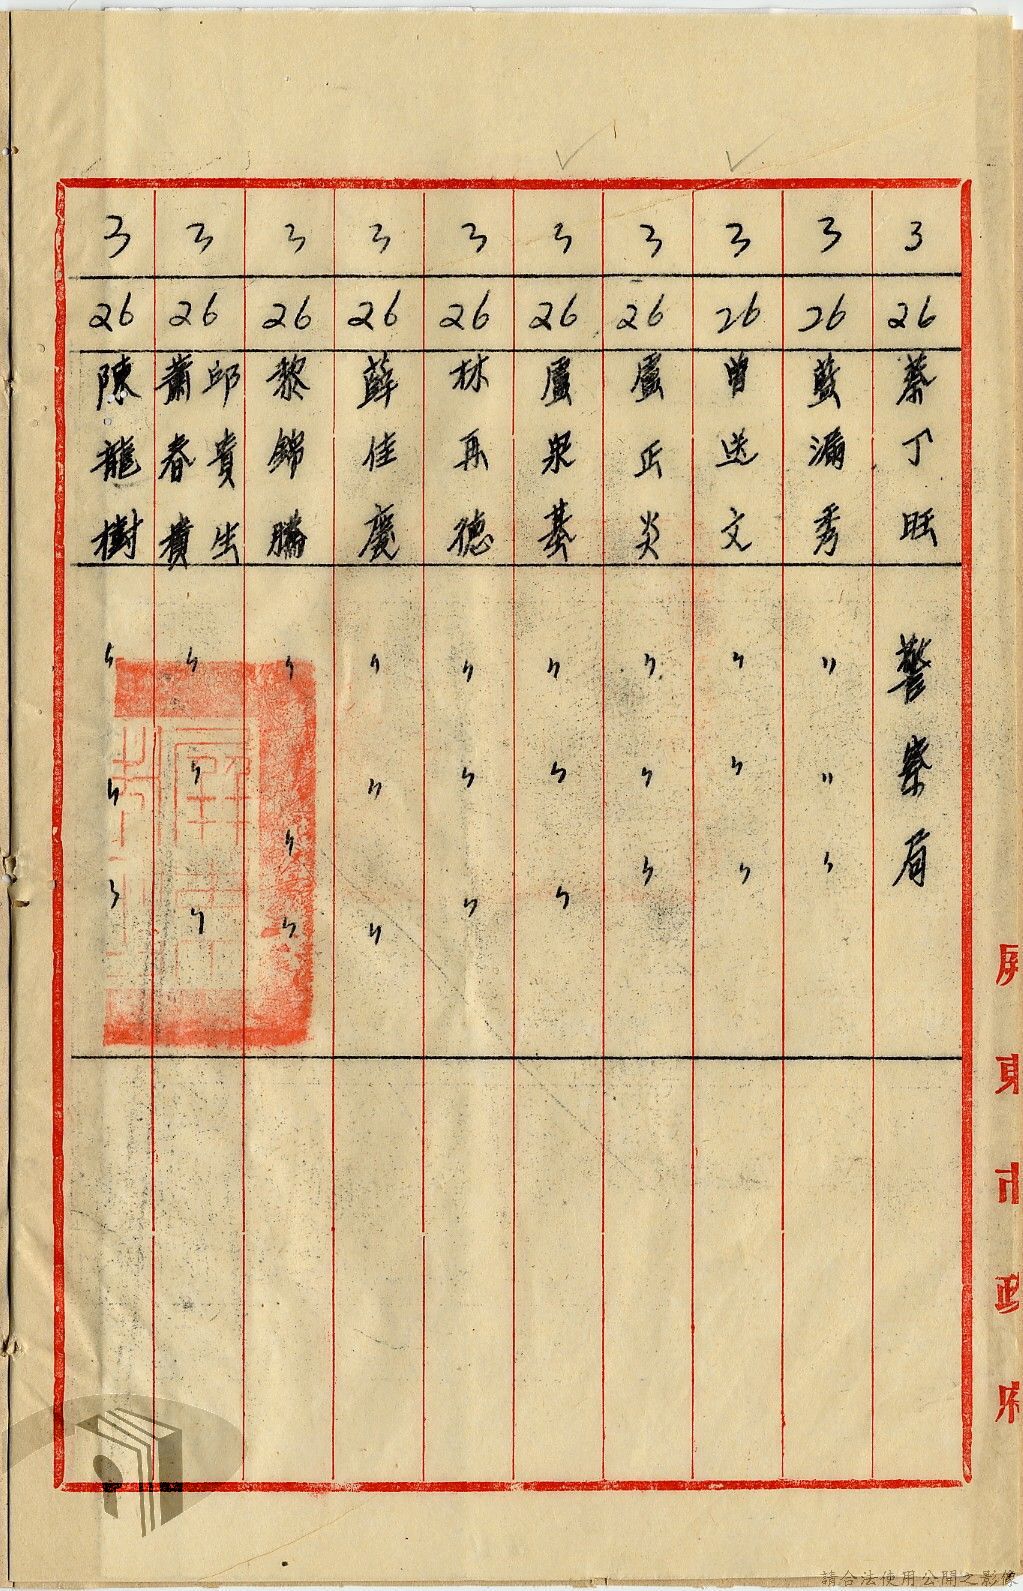 3 26 蔡丁旺 警察局
3 26 藍漏秀 〃〃〃
3 26 曾送文 〃〃〃
3 26 盧丘炎 〃〃〃
3 26 盧泉基 〃〃〃
3 26 林再德 〃〃〃
3 26 薛佳慶 〃〃〃
3 26 黎錦騰 〃〃〃
3 26 邱貴生
蕭春積 〃〃〃
3 26 陳龍樹 〃〃〃
屏東市政府
請合法使用公開之影像